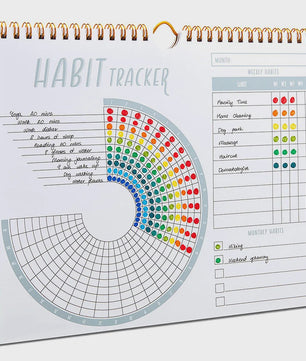 HABIT TRACKER
Yoga 20 mins
Work 20 mins
Wash dishes
8 hours of sleep
Reading 20 mins
8 glasses of water
Morning journaling
Dog walking
Water plants
MONTH:
WEEKLY HABITS
Family Time
Home Cleaning
Dog park
Massage
Haircut
Dermatologist
MONTHLY HABITS
Hiking
Weekend getaway